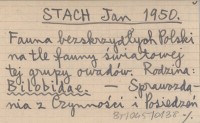 STACH Jan 1950.
Fauna bezskrzydłych Polski
na tle fauny światowej
tej grupy owadów. Rodzina:
Bilobidae: — Sprawozda-
nia z Czynności i Posiedzeń